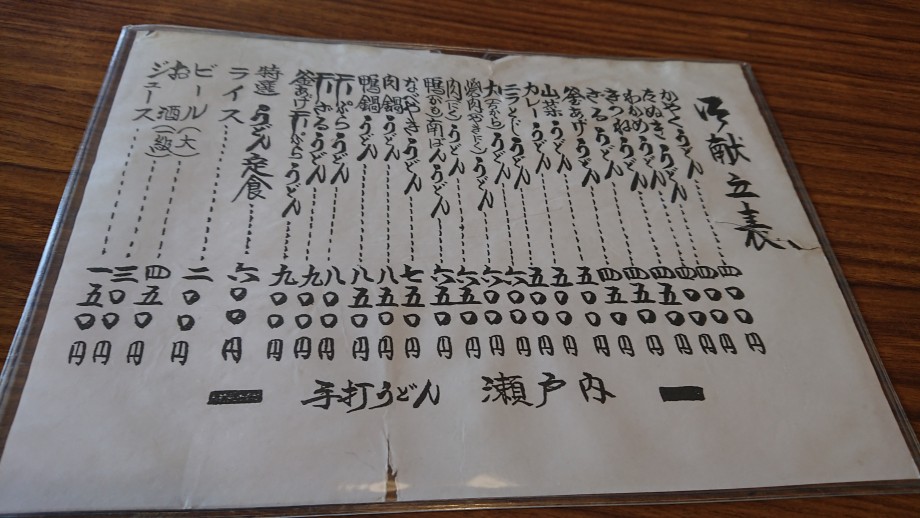 御献立表
かやくうどん 四〇〇円
たぬきうどん 四〇〇円
わかめうどん 四〇〇円
きつねうどん 四五〇円
ざるうどん 四五〇円
釜あげうどん 四五〇円
山菜うどん 五〇〇円
カレーうどん 五〇〇円
ニラとじうどん 五〇〇円
うどん 六〇〇円
焼肉(やきにく)うどん 六〇〇円
肉(にく)うどん 六五〇円
鴨(かも)南ばんうどん 六五〇円
なべやきうどん 七五〇円
肉鍋うどん 八五〇円
鴨鍋うどん 八五〇円
天ぷらうどん 八〇〇円
天ざるうどん 九〇〇円
釜あげ天ぷらうどん 九〇〇円
特選うどん定食 六〇〇円
ライス 二〇〇円
ビール(大) 四五〇円
お酒(一級) 三〇〇円
ジュース 一五〇円
手打うどん 瀬戸内